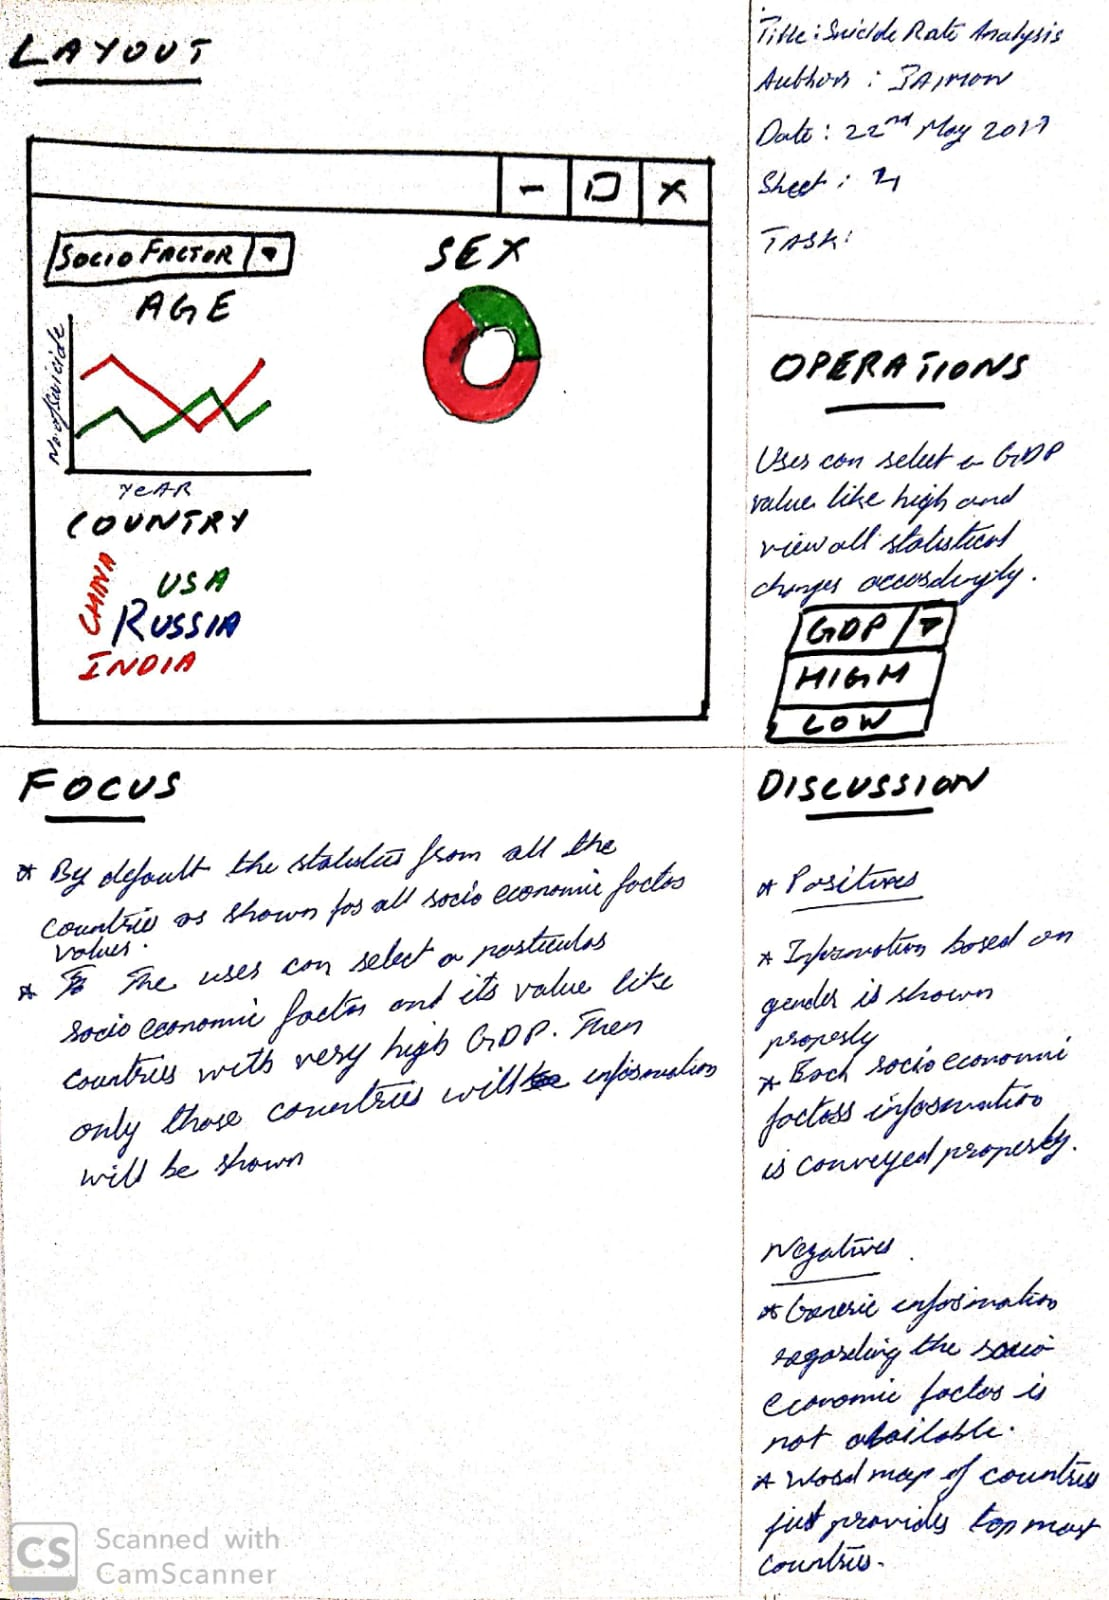 LAYOUT
Title: Suicide Rate Analysis
Author : JAIMON
Date: 22nd May 2017
Sheet : 4
TASK:
- X
SOCIO FACTOR
AGE
No of Suicide
YEAR
SEX
COUNTRY
CHINA
USA
RUSSIA
INDIA
OPERATIONS
User can select a GDP
value like high and
view all statistical
changes accordingly.
GDP
HIGH
LOW
FOCUS
* By default the statistics from all the
countries is shown for all socio economic factor
values.
* The user can select a particular
socio economic factor and its value like
countries with very high GDP. Then
only those countries will information
will be shown
DISCUSSION
* Positives
* Information based on
gender is shown
properly
* Each socio economic
factors information
is conveyed properly.
Negatives
* Generic information
regarding the socio
economic factor is
not available.
* Word map of countries
just provides top most
countries.
CS
Scanned with
CamScanner